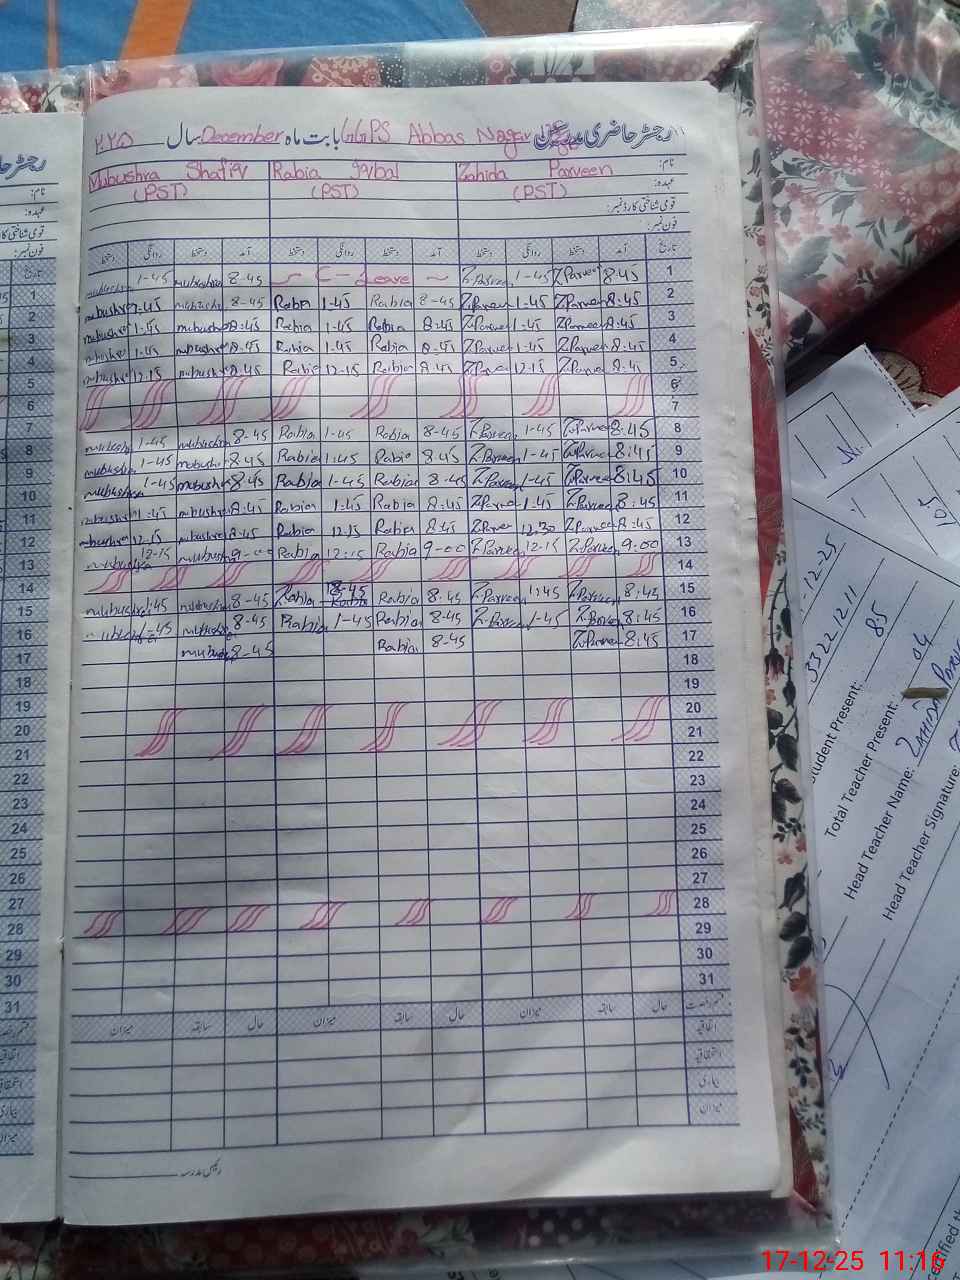 رجسٹر حاضری مدرسین GGPS Abbas Nagar بابت ماہ December سال ٢٠٢٥
نام: Zahida Parveen Rabia Iqbal Mubushra Shafiq
عہدہ: (PST) (PST) (PST)
قومی شناختی کارڈ نمبر:
فون نمبر:
تاریخ آمد دستخط روانگی دستخط آمد دستخط روانگی دستخط آمد دستخط روانگی دستخط
1 8-45 Z.Parveen 1-45 Z.Parveen Leave 8-45 mubushra 1-45 mubushra
2 8:45 Z.Parveen 1-45 Z.Parveen 8-45 Rabia 1-45 Rabia 8-45 mubushra 1-45 mubushra
3 8:45 Z.Parveen 1-45 Z.Parveen 8-45 Rabia 1-45 Rabia 8:45 mubushra 1-45 mubushra
4 8-45 Z.Parveen 1-45 Z.Parveen 8-45 Rabia 1-45 Rabia 8-45 mubushra 1-45 mubushra
5 8:45 Z.Parveen 12-15 Z.Parveen 8:45 Rabia 12-15 Rabia 8:45 mubushra 12-15 mubushra
6
7
8 8-45 Z.Parveen 1-45 Z.Parveen 8-45 Rabia 1-45 Rabia 8-45 mubushra 1-45 mubushra
9 8:45 Z.Parveen 1-45 Z.Parveen 8:45 Rabia 1:45 Rabia 8:45 mubushra 1-45 mubushra
10 8:45 Z.Parveen 1-45 Z.Parveen 8-45 Rabia 1-45 Rabia 8:45 mubushra 1-45 mubushra
11 8:45 Z.Parveen 1-45 Z.Parveen 8:45 Rabia 1:45 Rabia 8:45 mubushra 1:45 mubushra
12 8:45 Z.Parveen 12.30 Z.Parveen 8:45 Rabia 12.15 Rabia 8:45 mubushra 12.15 mubushra
13 9:00 Z.Parveen 12-15 Z.Parveen 9-00 Rabia 12:15 Rabia 9-00 mubushra 12-15 mubushra
14
15 8:45 Z.Parveen 1:45 Z.Parveen 8-45 Rabia Rabia 8-45 mubushra 1:45 mubushra
16 8:45 Z.Parveen 1-45 Z.Parveen 8-45 Rabia 1-45 Rabia 8-45 mubushra 1-45
17 8:45 Z.Parveen 8-45 Rabia 8-45 mubushra
18
19
20
21
22
23
24
25
26
27
28
29
30
31
حال سابقہ میزان حال سابقہ میزان حال سابقہ میزان
اتفاقیہ
استحقاقیہ
بیماری
میزان
رئیس مدرسہ
رجسٹر حا
نام:
عہدہ:
قومی شناختی کا
فون نمبر:
تاریخ
1
2
3
4
5
6
7
8
9
10
11
12
13
14
15
16
17
18
19
20
21
22
23
24
25
26
27
28
29
30
31
-12-25
33221211
Student Present: 85
Total Teacher Present: 04
Head Teacher Name: Zahida
Head Teacher Signature:
10.5
17-12-25 11:16